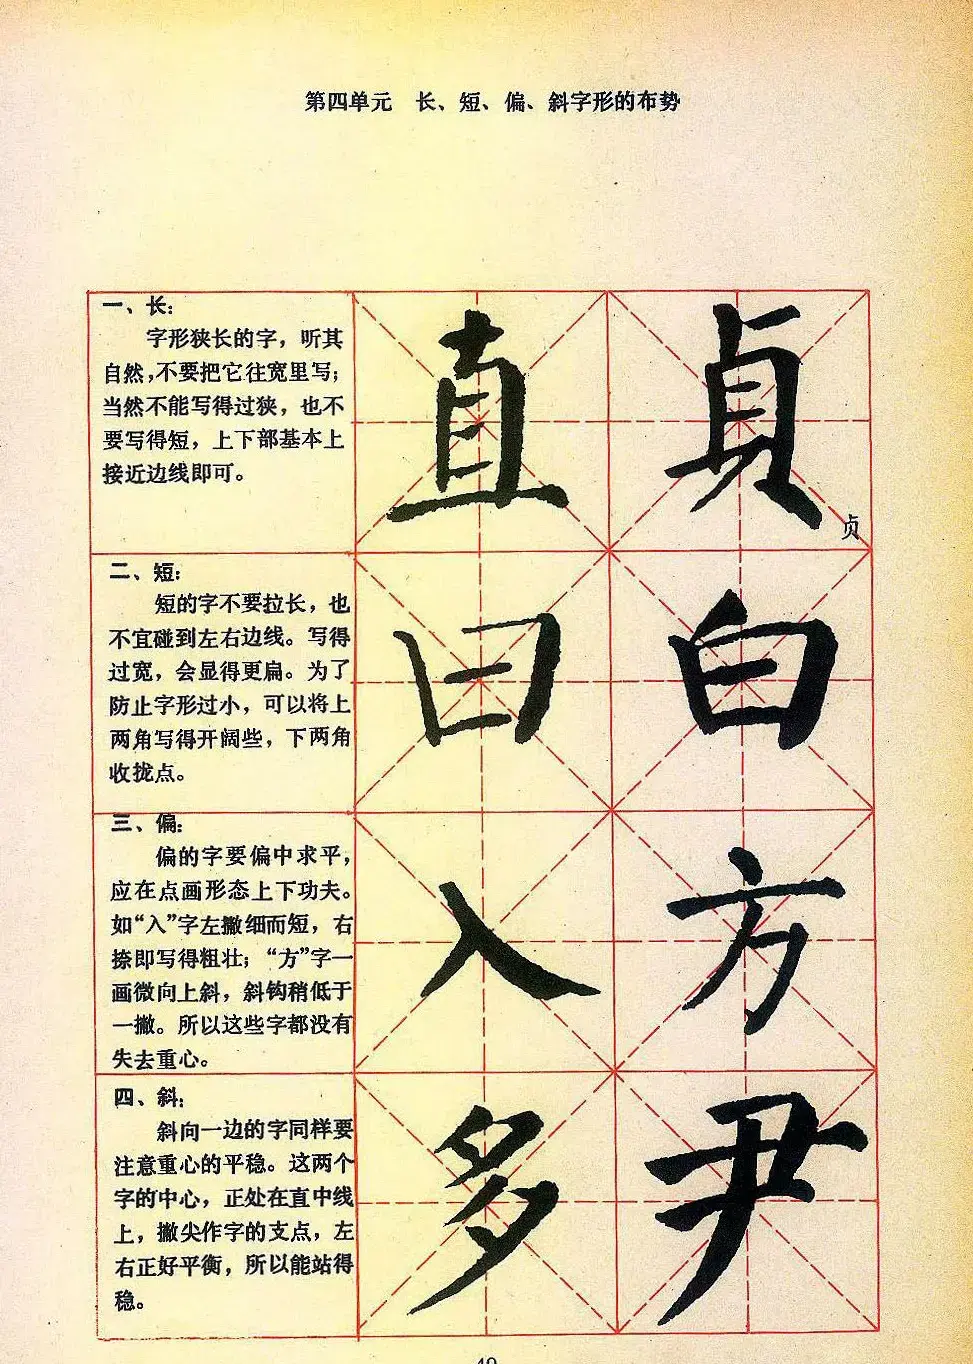 第四单元　长、短、偏、斜字形的布势
一、长：
字形狭长的字，听其
自然，不要把它往宽里写；
当然不能写得过狭，也不
要写得短，上下部基本上
接近边线即可。
直 貞
贞
二、短：
短的字不要拉长，也
不宜碰到左右边线。写得
过宽，会显得更扁。为了
防止字形过小，可以将上
两角写得开阔些，下两角
收拢点。
曰 白
三、偏：
偏的字要偏中求平，
应在点画形态上下功夫。
如“入”字左撇细而短，右
捺即写得粗壮；“方”字一
画微向上斜，斜钩稍低于
一撇。所以这些字都没有
失去重心。
入 方
四、斜：
斜向一边的字同样要
注意重心的平稳。这两个
字的中心，正处在直中线
上，撇尖作字的支点，左
右正好平衡，所以能站得
稳。
多 尹